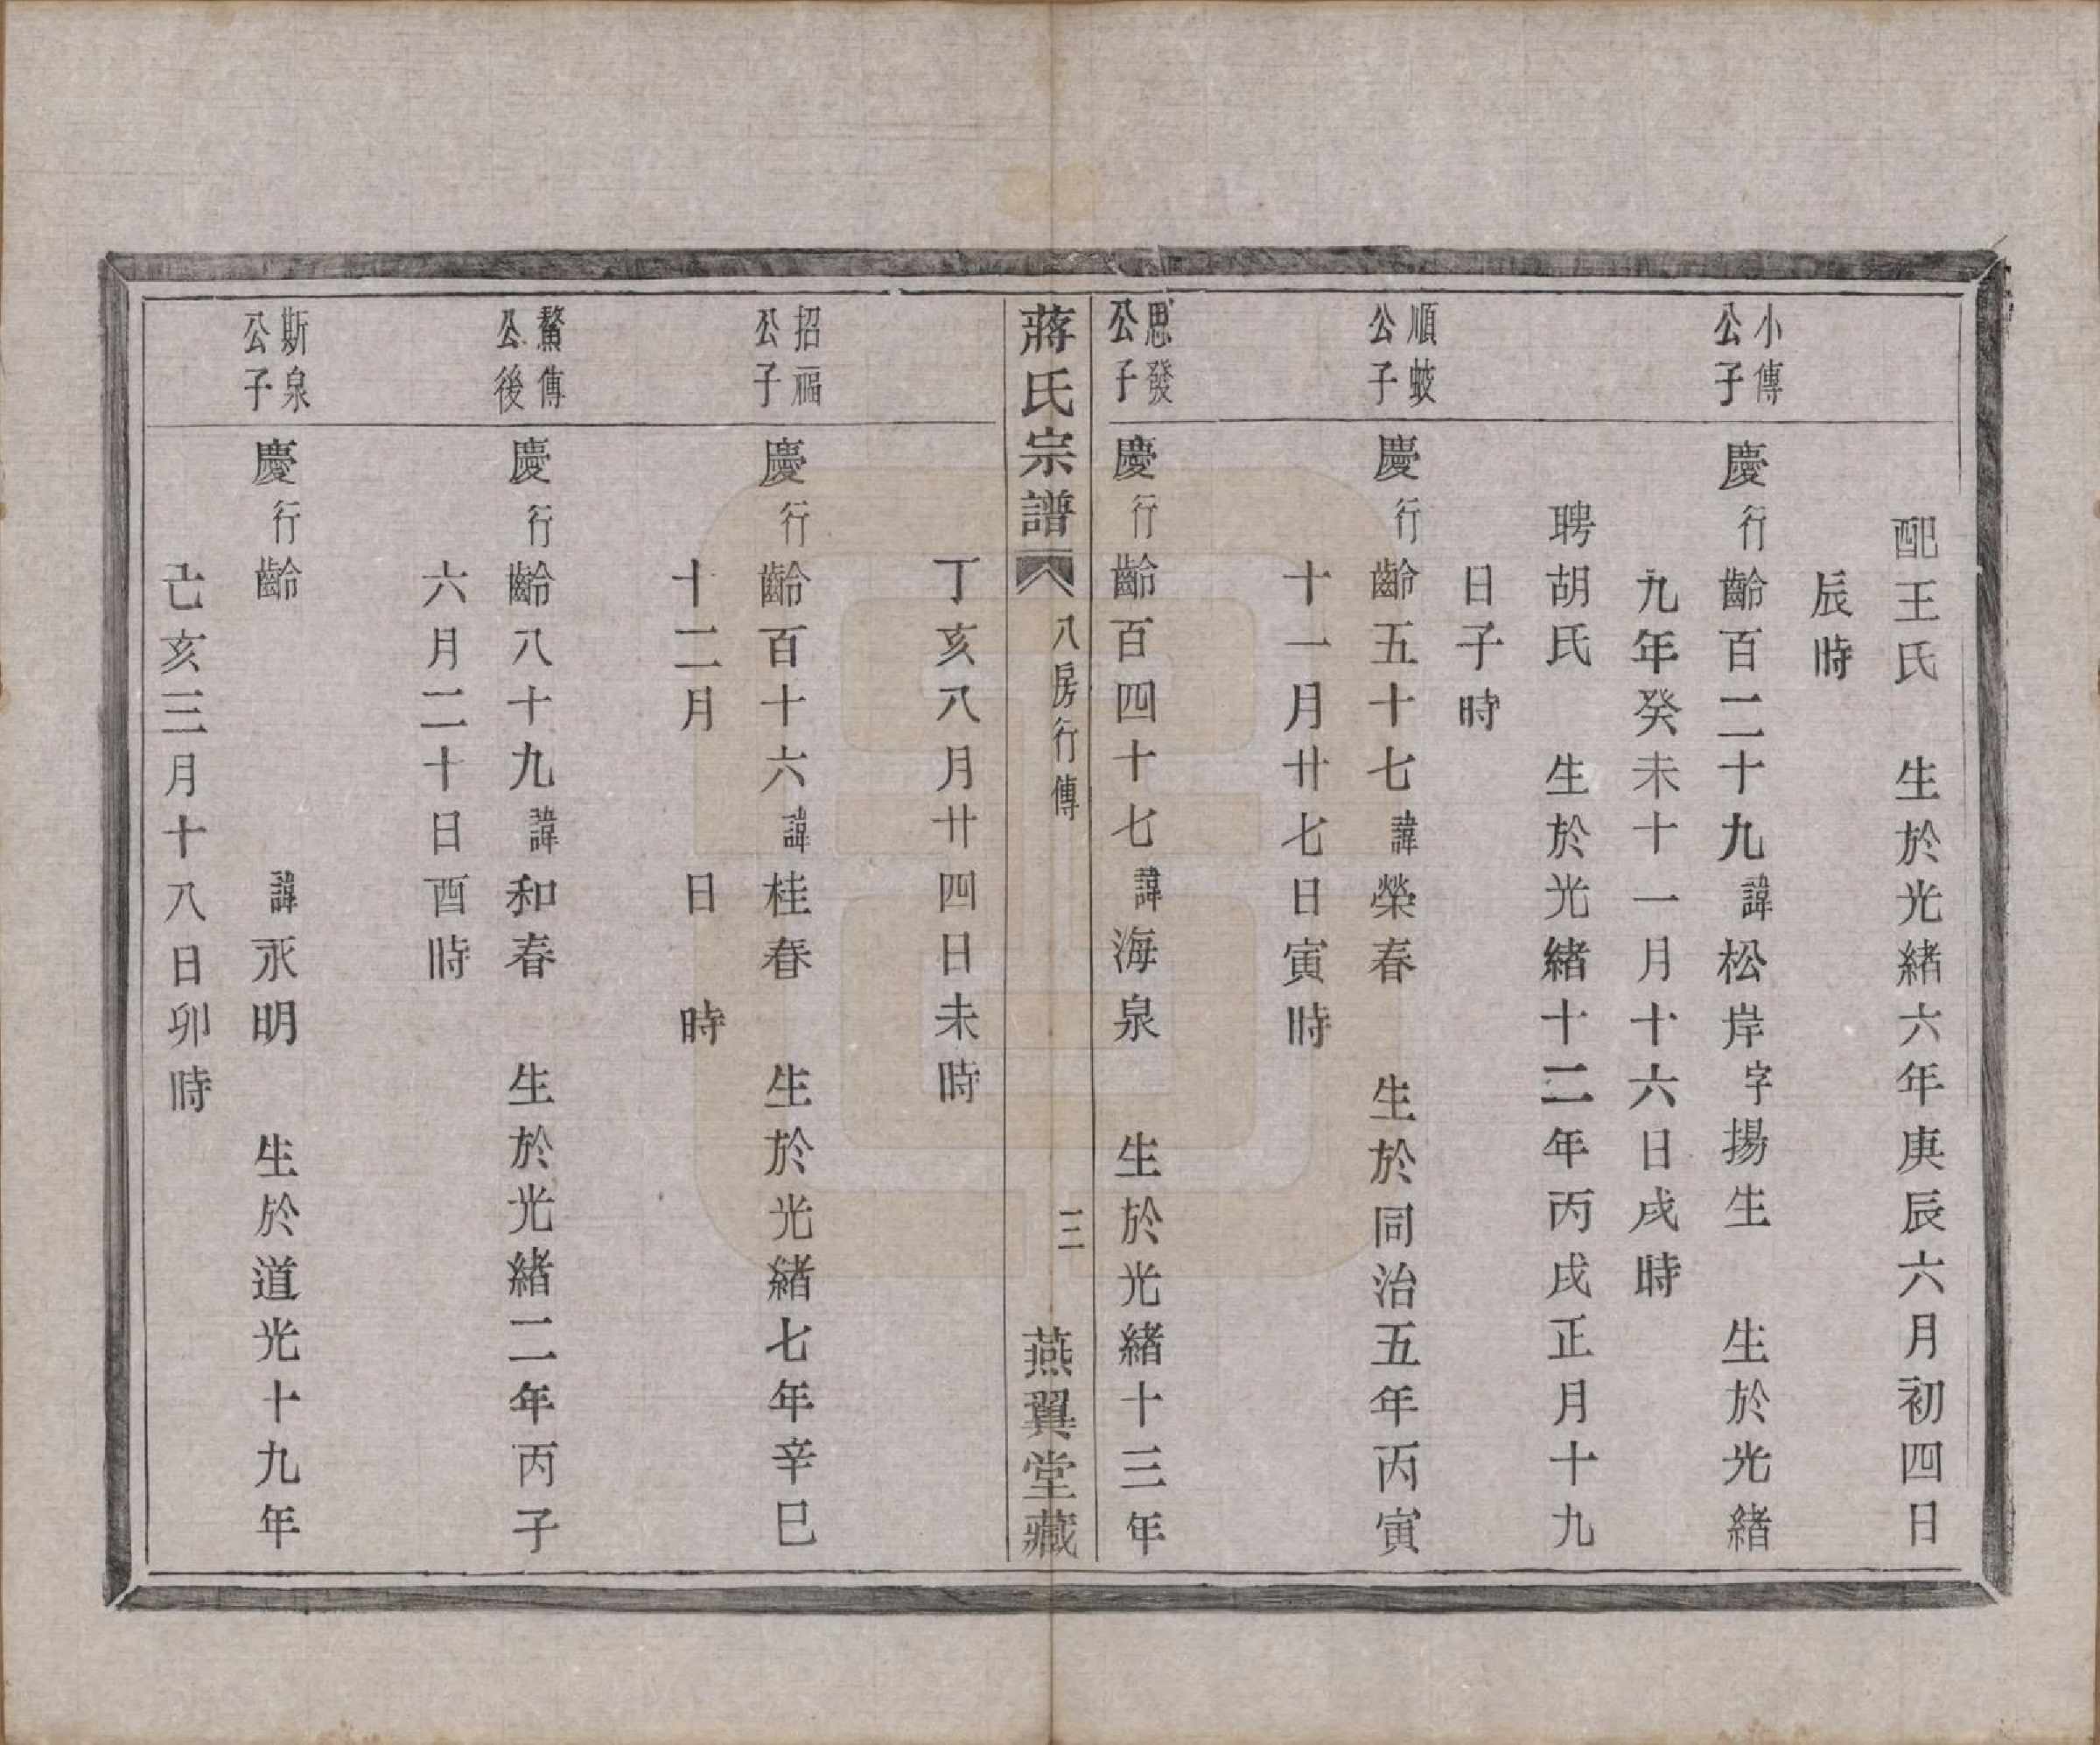 配王氏　生於光緒六年庚辰六月初四日
辰時
小傳公子
慶行齡百二十九諱松岸字揚生　生於光緒
九年癸未十一月十六日戌時
聘胡氏　生於光緒十二年丙戌正月十九
日子時
順蛟公子
慶行齡五十七諱榮春　生於同治五年丙寅
十一月廿七日寅時
思發公子
慶行齡百四十七諱海泉　生於光緒十三年
蔣氏宗譜　八房行傳　三　燕翼堂藏
丁亥八月廿四日未時
招福公子
慶行齡百十六諱桂春　生於光緒七年辛巳
十二月　日　時
鰲傳公後
慶行齡八十九諱和春　生於光緒二年丙子
六月二十日酉時
斯泉公子
慶行齡　諱永明　生於道光十九年
亡亥三月十八日卯時